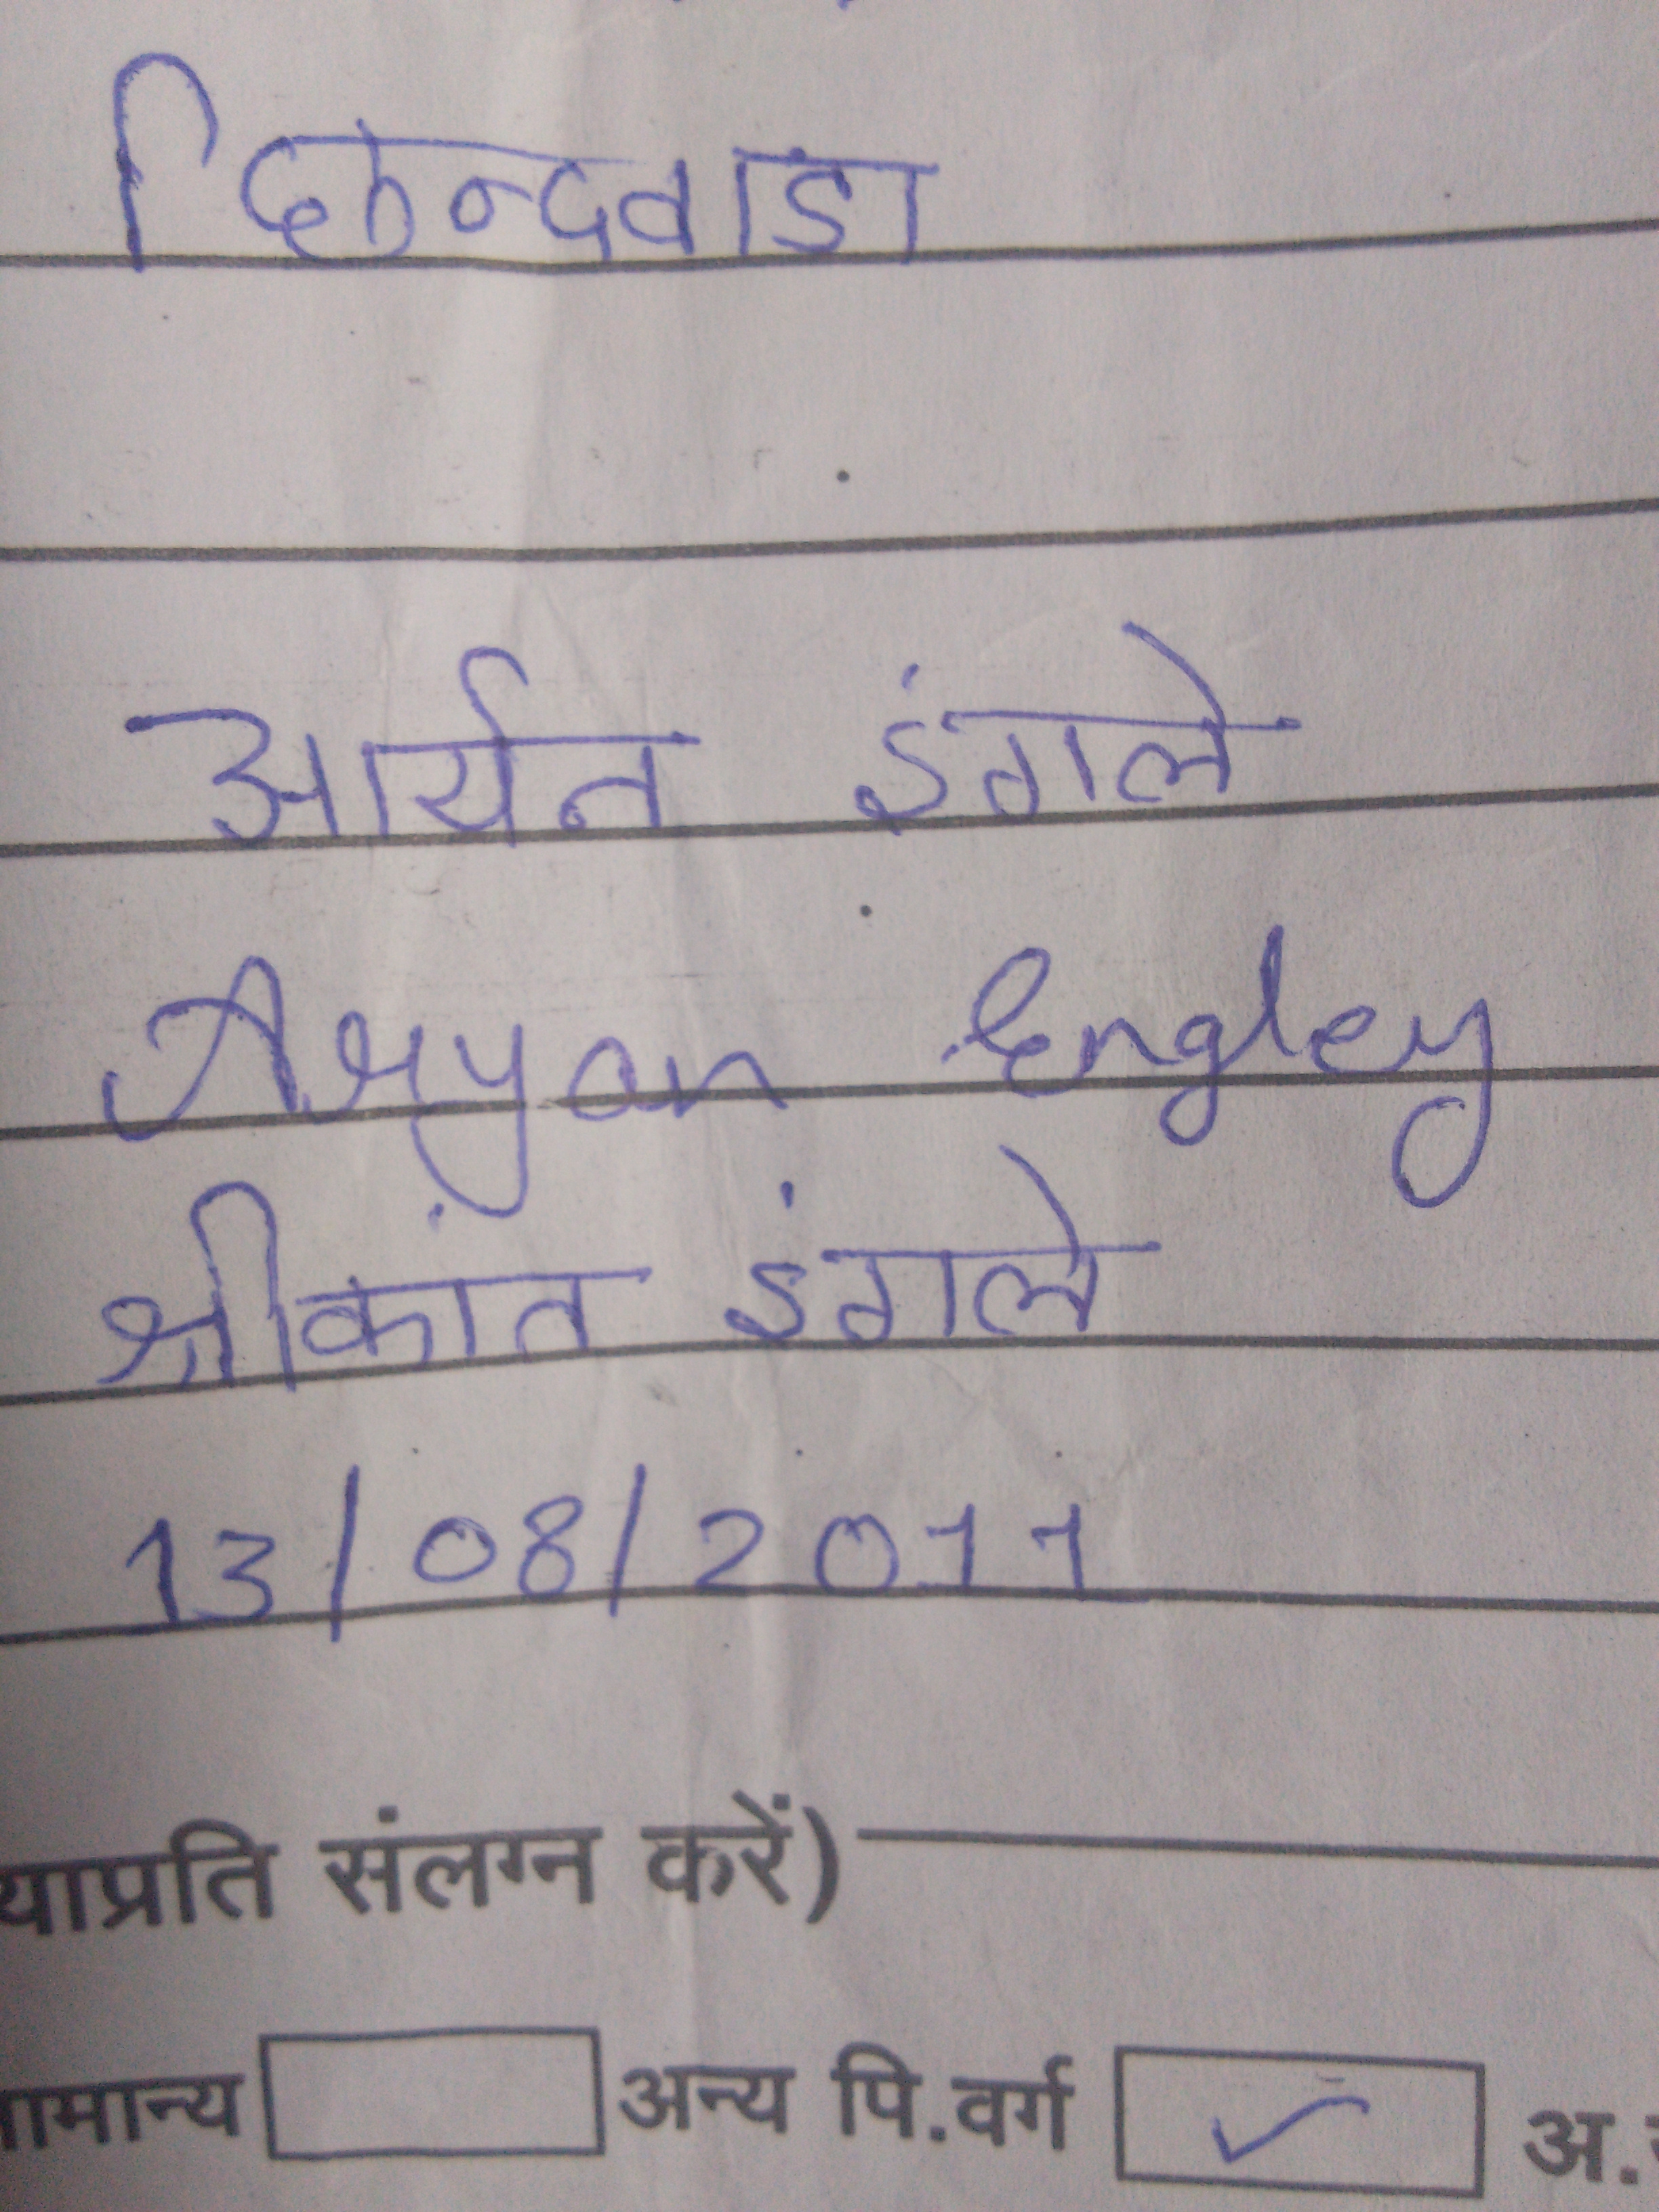 छिन्दवाडा
आर्यन इंगले
Aryan Engley
श्रीकांत इंगले
13/08/2011
याप्रति संलग्न करें)
ामान्य अन्य पि.वर्ग ✓ अ.